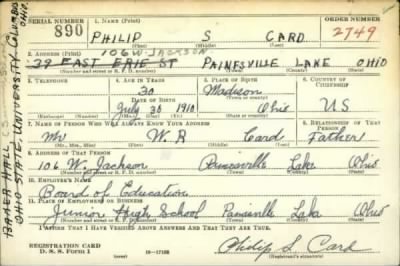 SERIAL NUMBER 1. NAME (Print) ORDER NUMBER
890 PHILIP S CARD 2749
(First) (Middle) (Last)
106 W. JACKSON
2. ADDRESS (Print)
39 EAST ERIE ST PAINESVILLE LAKE OHIO
(Number and street or R. F. D. number) (Town) (County) (State)
3. TELEPHONE 4. AGE IN YEARS 5. PLACE OF BIRTH 6. COUNTRY OF CITIZENSHIP
30 Madison
DATE OF BIRTH
July 30 1910 Ohio US
(Mo.) (Day) (Yr.) (State or country)
7. NAME OF PERSON WHO WILL ALWAYS KNOW YOUR ADDRESS 8. RELATIONSHIP OF THAT PERSON
Mr W. R Card Father
(Mr., Mrs., Miss) (First) (Middle) (Last)
9. ADDRESS OF THAT PERSON
106 W. Jackson Painesville Lake Ohio
(Number and street or R. F. D. number) (Town) (County) (State)
10. EMPLOYER'S NAME
Board of Education
11. PLACE OF EMPLOYMENT OR BUSINESS
Junior High School Painesville Lake Ohio
(Number and street or R. F. D. number) (Town) (County) (State)
I AFFIRM THAT I HAVE VERIFIED ABOVE ANSWERS AND THAT THEY ARE TRUE.
REGISTRATION CARD
D. S. S. Form 1 16-17105 Philip S. Card
(Registrant's signature)
BAKER HALL
OHIO STATE UNIVERSITY, COLUMBUS OHIO.